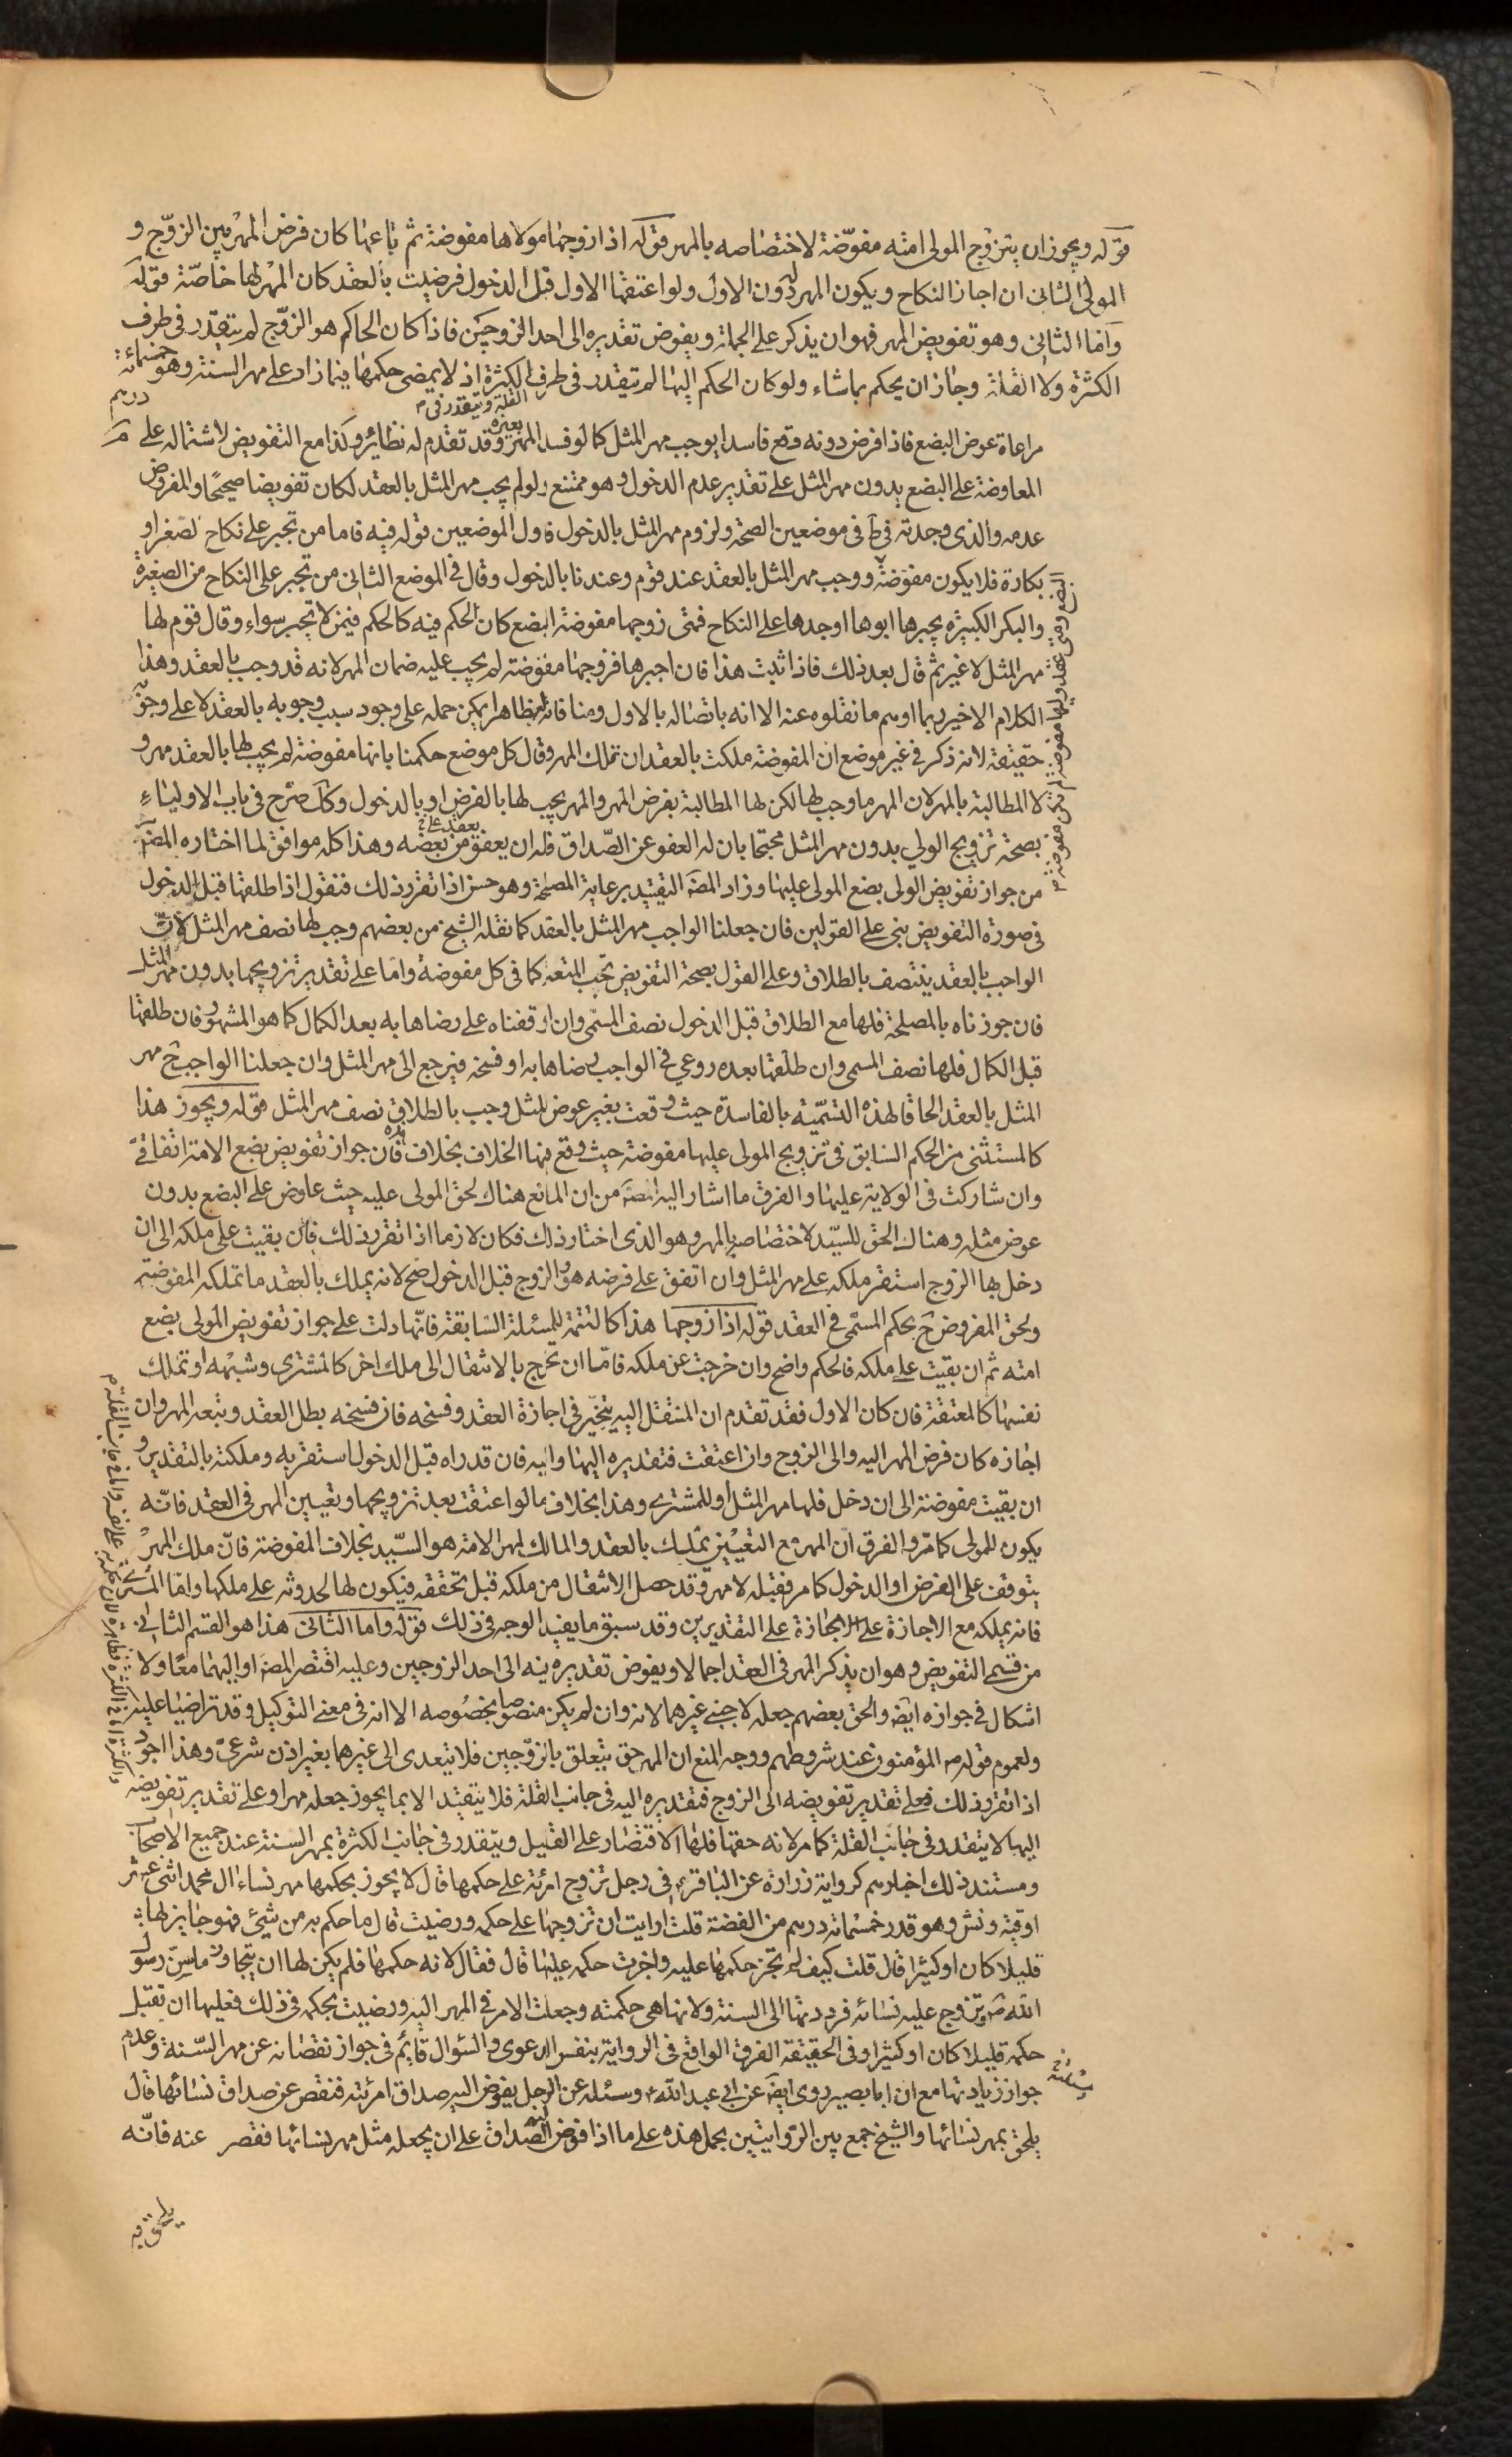 قوله ويجوز ان يتزوج المولى امته مفوّضة لاختصاصه بالمهر قوله اذا زوجها مولاها مفوضة ثم باعها كان فرض المهر بين الزوّج و
المولى الثانى ان اجاز النكاح ويكون المهر له دون الاول ولو اعتقها الاول قبل الدخول فرضيت بالعقد كان المهر لها خاصّة قوله
وامّا الثانى وهو تفويض المهر فهو ان يذكر على الجملة ويفوض تقديره الى احد الزوجين فاذا كان الحاكم هو الزوّج لم يتقدّر فى طرف
الكثرة ولا القلة وجاز ان يحكم بما شاء ولو كان الحكم اليها لم تيقدر فى طرف الكثرة اذ لا يمضى حكمها فيما زاد على مهر السنة وهو خمسمائة
القلة ويتقدر فى
درهم
مراعاة عوض البضع فاذا فرض دونه وقع فاسدا يوجب مهر المثل كما لو فسد المهر بغيره وقد تقدم له نظاير وكذا مع التفويض لاشتماله على
المعاوضة على البضع بدون مهر المثل على تقدير عدم الدخول وهو ممتنع ولو لم يجب مهر المثل بالعقد لكان تفويضا صحيحا والمفروض
عدمه والذى وجدته فى ط فى موضعين الصحة ولزوم مهر المثل بالدخول فاول الموضعين قوله فيه فاما من تجبر على نكاح لصغر او
بكارة فلا يكون مفوّضة ووجب مهر المثل بالعقد عند قوم وعندنا بالدخول وقال فى الموضع الثانى من تجبر على النكاح من الصغيرة
والبكر الكبيرة يجبرها ابوها او جدها على النكاح فمتى زوجها مفوضة البضع كان الحكم فيه كالحكم فيمن لا تجبر سواء وقال قوم لها
مهر المثل لا غير ثم قال بعد ذلك فاذا ثبت هذا فان اجبرها فزوجها مفوّضة لم يجب عليه ضمان المهر لانه قد وجب بالعقد وهذا
الكلام الاخير ربما اوهم ما نقلوه عنه الا انه باتصاله بالاول ومنافاته لظاهره يمكن حمله على وجود سبب وجوبه بالعقد لا على وجوبه
حقيقة لانه ذكر فى غير موضع ان المفوضة ملكت بالعقد ان تملك المهر وقال كل موضع حكمنا بانها مفوضة لم يجب لها بالعقد مهر و
لا المطالبة بالمهر لان المهر ما وجب لها لكن لها المطالبة بفرض المهر والمهر يجب لها بالفرض او بالدخول وكك صرّح فى باب الاولياء
بصحة تزويج الولي بدون مهر المثل محتجا بان له العفو عن الصّداق فله ان يعفو عن بعضه وهذا كله موافق لما اختاره المصّ
من جواز تفويض الولى بضع المولى عليها وزاد المصّ التقييد برعاية المصلحة وهو حسن اذا تقرر ذلك فنقول اذا طلقها قبل الدخول
فى صورة التفويض بنى على القولين فان جعلنا الواجب مهر المثل بالعقد كما نقله الشيخ من بعضهم وجب لها نصف مهر المثل لانّ
الواجب بالعقد ينتصف بالطلاق وعلى القول بصحة التفويض تجب المتعة كما فى كل مفوضة واما على تقدير تزويجها بدون مهر المثل
فان جوزناه بالمصلحة فلها مع الطلاق قبل الدخول نصف المسمّى وان اوقفناه على رضاها به بعد الكمال كما هو المشهور فان طلقها
قبل الكمال فلها نصف المسمى وان طلقها بعده روعي فى الواجب رضاها به او فسخه فيرجع الى مهر المثل وان جعلنا الواجب ح مهر
المثل بالعقد الحاقا لهذه التسميّة بالفاسدة حيث وقعت بغير عوض المثل وجب بالطلاق نصف مهر المثل قوله ويجوز هذا
كالمستثنى من الحكم السابق فى تزويج المولى عليها مفوضة حيث وقع فيها الخلاف بخلاف هذه فان جواز تفويض بضع الامة اتفاقىّ
وان شاركت فى الولاية عليها والفرق ما اشار اليه المصّ من ان المانع هناك لحق المولى عليه حيث عاوض على البضع بدون
عوض مثله وهنا لان الحق للسيّد لاختصاصه بالمهر وهو الذى اختار ذلك فكان لازما اذا تقرر ذلك فان بقيت على ملكه الى ان
دخل بها الزوج استقر ملكه على مهر المثل وان اتفق على فرضه هو والزوج قبل الدخول صح لانه يملك بالعقد ما تملكه المفوضة
ولحق المفروض ح بحكم المسمّى فى العقد قوله اذا زوجها هذا كالتتمة للمسئلة السّابقة فانّها دلت على جواز تفويض المولى بضع
امته ثم ان بقيت على ملكه فالحكم واضح وان خرجت عن ملكه فامّا ان تخرج بالانتقال الى ملك اخر كالمشترى وشبهه او تملك
نفسها كالمعتقة فان كان الاول فقد تقدم ان المنتقل اليه يتخيّر فى اجازة العقد وفسخه فان فسخه بطل العقد وتبعه المهر وان
اجازه كان فرض المهر اليه والى الزوج وان اعتقت فتقديره اليها واليه فان قدراه قبل الدخول استقر به وملكته بالتقدير و
ان بقيت مفوضة الى ان دخل فلها مهر المثل او للمشترى وهذا بخلاف ما لو اعتقت بعد تزويجها وتعيين المهر فى العقد فانّه
يكون للمولى كما مرّ والفرق انّ المهر مع التعيين يملك بالعقد والمالك لمهر الامة هو السّيد بخلاف المفوضة فانّ ملك المهر
يتوقف على الفرض او الدخول كما مر فقبله لا مهر وقد حصل الانتقال من ملكه قبل تحققه فيكون لها لحدوثه على ملكها وامّا المشترى
فانه يملكه مع الاجازة على التقديرين وقد سبق ما يفيد الوجه فى ذلك قوله واما الثانى هذا هو القسم الثانى
من قسمى التفويض وهو ان يذكر المهر فى العقد اجمالا ويفوض تقديره فيه الى احد الزوجين وعليه اقتصر المصّ او اليهما معا ولا
اشكال فى جوازه ايضا والحق بعضهم جعله لاجنبى غيرهما لانه وان لم يكن منصوصا بخصوصه الا انه فى معنى التوكيل وقد تراضيا عليه
ولعموم قوله ص المؤمنون عند شروطهم ووجه المنع ان المهر حق يتعلق بالزوّجين فلا يتعدى الى غيرهما بغير اذن شرعىّ وهذا اجود
اذا تقرر ذلك فعلى تقدير تفويضه الى الزوج فتقديره اليه فى جانب القلة فلا يتقيد الا بما يجوز جعله مهرا وعلى تقدير تفويضه
اليها لا يتقدر فى جانب القلة كما مر لانه حقها فلها الاقتصار على القليل ويتقدر فى جانب الكثرة بمهر السنة عند جميع الاصحاب
ومستند ذلك اخبارهم كرواية زرارة عن الباقر ع فى رجل تزوج امرئة على حكمها قال لا يجوز بحكمها مهر نساء ال محمد اثنى عشر
اوقية ونش وهو قدر خمسمائة درهم من الفضة قلت ارايت ان تزوجها على حكمه ورضيت قال ما حكم به من شىء فهو جايز لها
قليلا كان او كثيرا قال قلت كيف لم تجز حكمها عليه واجزت حكمه عليها قال فقال لانه حكمها فلم يكن لها ان يتجاوز ما سنّ رسول
الله ص وتزوج عليه نسائه فرددتها الى السنة ولانها هى حكمته وجعلت الامر فى المهر اليه ورضيت بحكمه فى ذلك فعليها ان تقبل
حكمه قليلا كان او كثيرا وفى الحقيقة الفرق الواقع فى الرواية بنفس الدعوى والسؤال قائم فى جواز نقصانه عن مهر السّنة وعدم
جواز زيادتها مع ان ابا بصير روى ايضا عن ابى عبد الله ع وسئله عن الرجل يفوض اليه صداق امرئته فنقص عن صداق نسائها قال
يلحق بمهر نسائها والشيخ جمع بين الروايتين بحمل هذه على ما اذا فوض اليه الصّداق على ان يجعله مثل مهر نسائها فقصر عنه فانّه
يلحق به